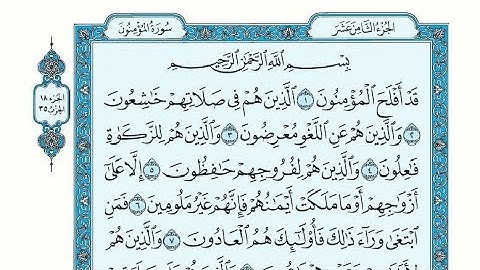 الجزء الثامن عشر
سورة المؤمنون
الجزء ١٨
الحزب ٣٥
بِسْمِ ٱللَّهِ ٱلرَّحْمَٰنِ ٱلرَّحِيمِ
قَدْ أَفْلَحَ ٱلْمُؤْمِنُونَ ١ ٱلَّذِينَ هُمْ فِى صَلَاتِهِمْ خَٰشِعُونَ
٢ وَٱلَّذِينَ هُمْ عَنِ ٱللَّغْوِ مُعْرِضُونَ ٣ وَٱلَّذِينَ هُمْ لِلزَّكَوٰةِ
فَٰعِلُونَ ٤ وَٱلَّذِينَ هُمْ لِفُرُوجِهِمْ حَٰفِظُونَ ٥ إِلَّا عَلَىٰٓ
أَزْوَٰجِهِمْ أَوْ مَا مَلَكَتْ أَيْمَٰنُهُمْ فَإِنَّهُمْ غَيْرُ مَلُومِينَ ٦ فَمَنِ
ٱبْتَغَىٰ وَرَآءَ ذَٰلِكَ فَأُو۟لَٰٓئِكَ هُمُ ٱلْعَادُونَ ٧ وَٱلَّذِينَ هُمْ